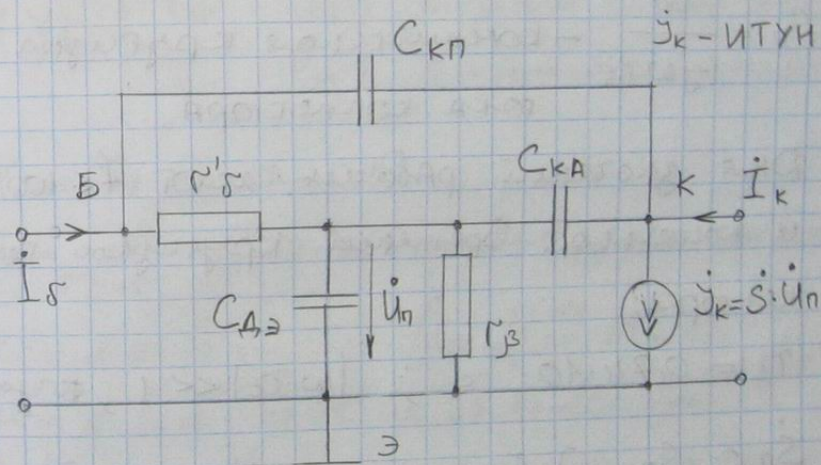 Cкп
j̇к - ИТУН
Б
r'б
Cка
К
İк
İб
Cдэ
U̇п
rβ
j̇к = Ṡ·U̇п
Э